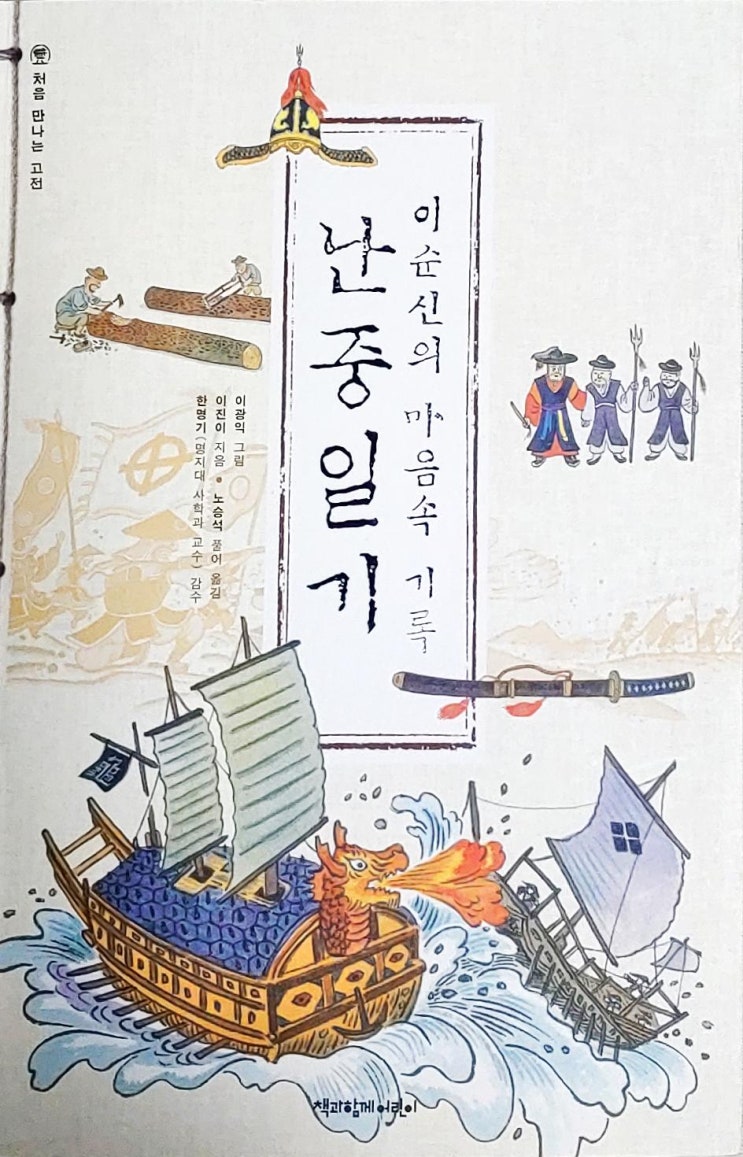 처음 만나는 고전
이순신의 마음속 기록
난중일기
이광익 그림
이진이 지음 • 노승석 풀어 옮김
한명기(명지대 사학과 교수) 감수
책과함께어린이